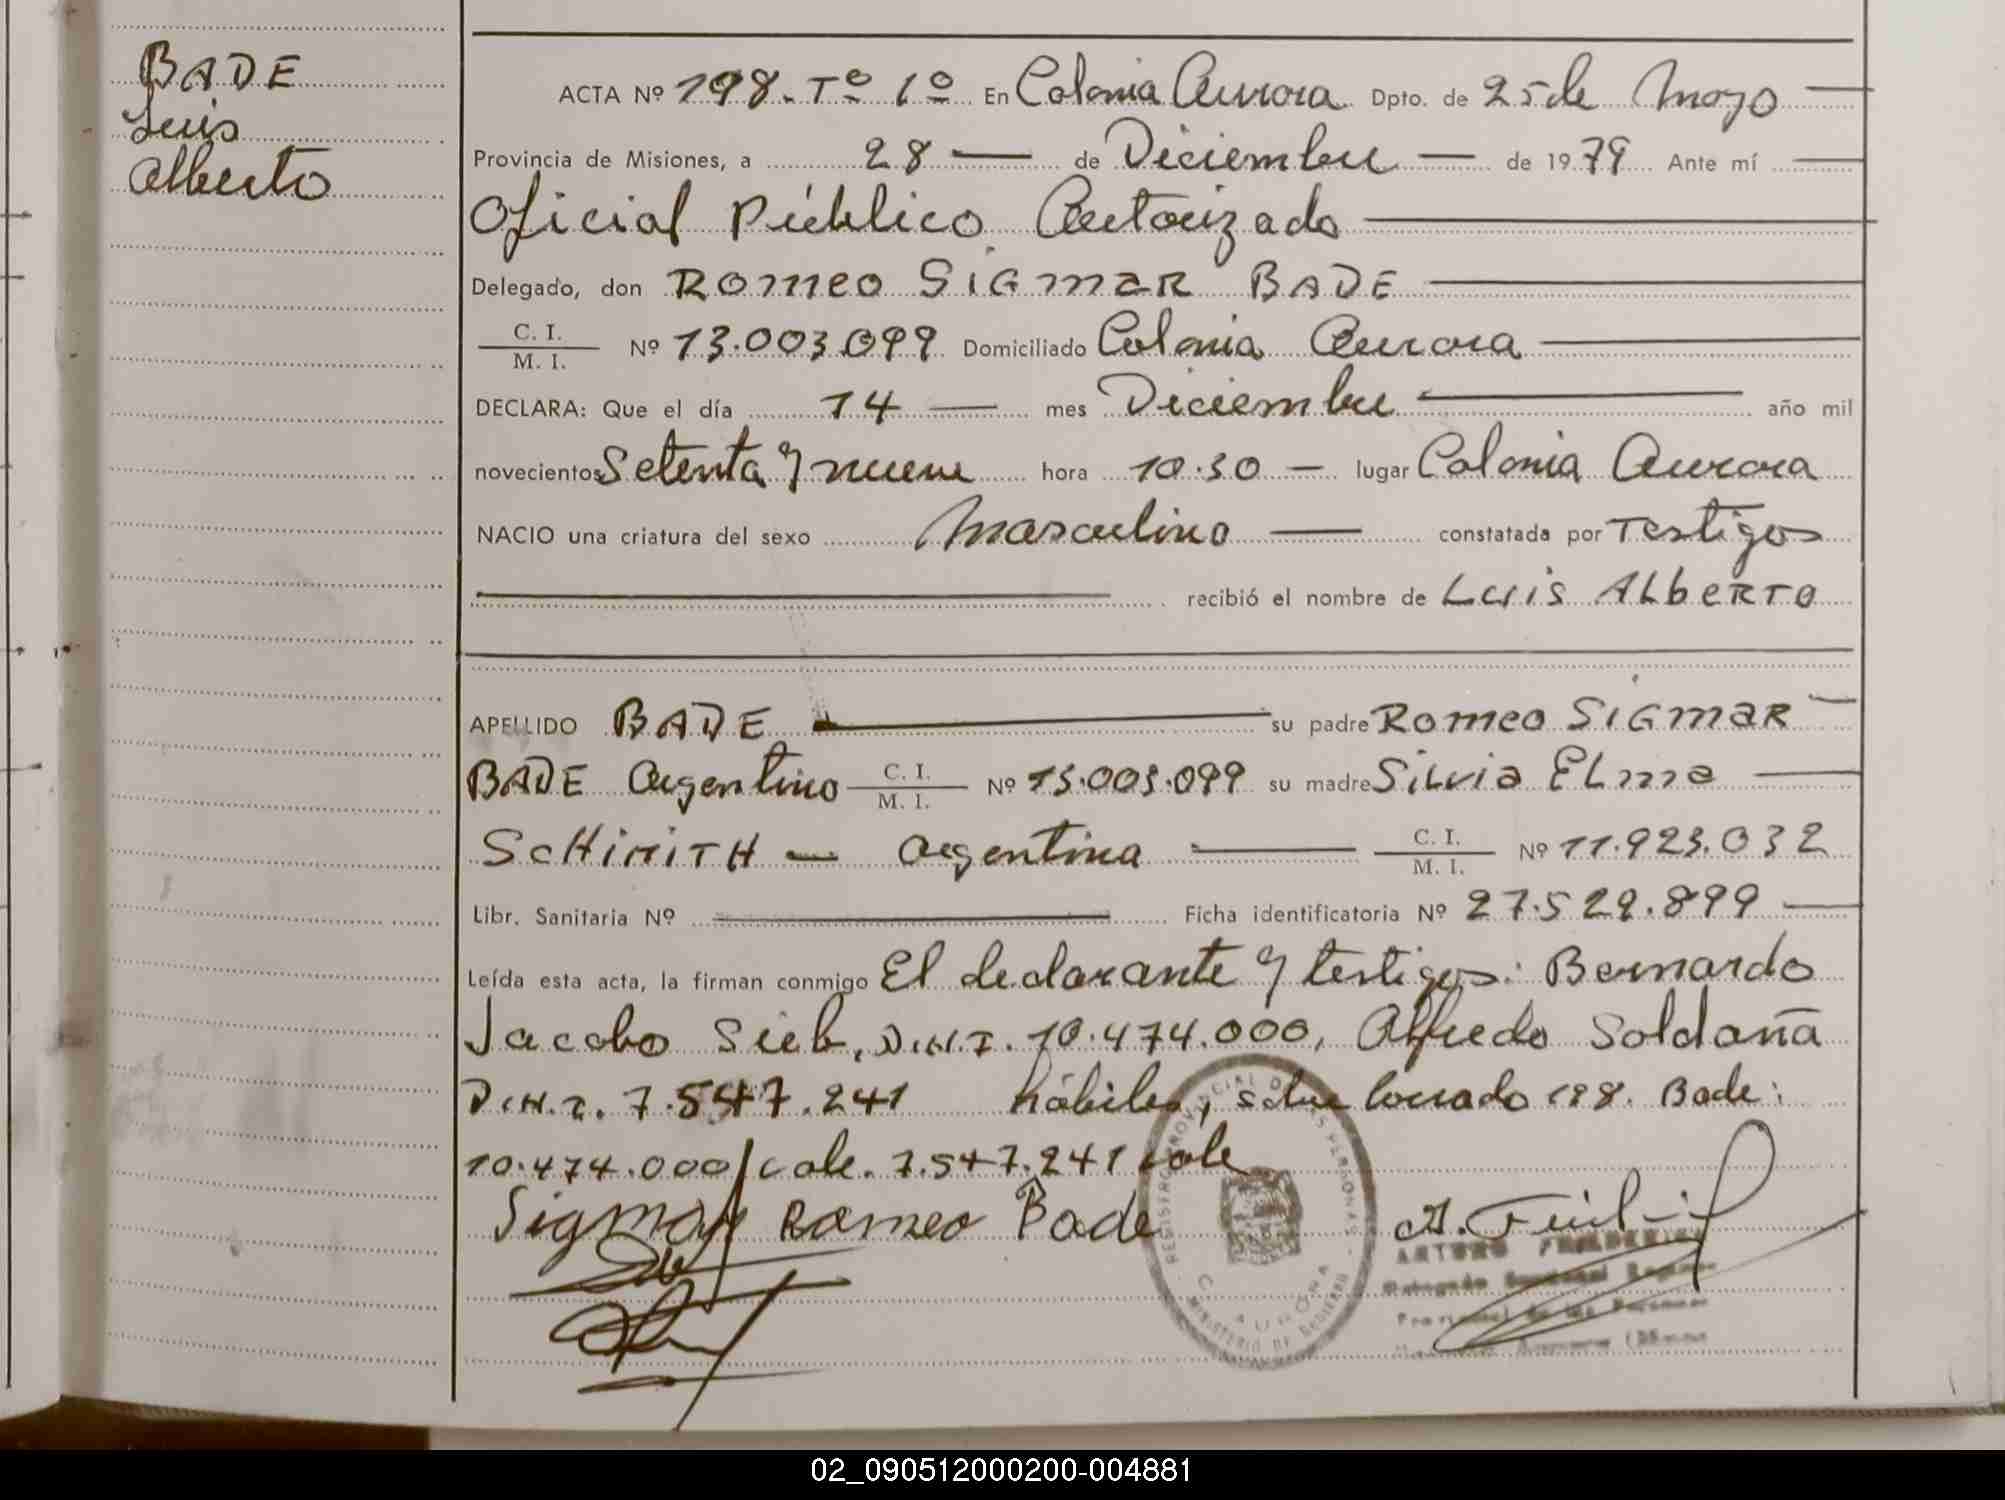 BADE
Luis
Alberto
ACTA Nº 198. Tº 1º En Colonia Aurora Dpto. de 25 de Mayo
Provincia de Misiones, a 28 de Diciembre de 1979 Ante mí
Oficial Público Autorizado
Delegado, don ROMEO SIGMAR BADE
C. I.
M. I. Nº 13.003.099 Domiciliado Colonia Aurora
DECLARA: Que el día 14 mes Diciembre año mil
novecientos Setenta y nueve hora 10.30 lugar Colonia Aurora
NACIO una criatura del sexo Masculino constatada por Testigos
recibió el nombre de LUIS ALBERTO
APELLIDO BADE su padre ROMEO SIGMAR
BADE Argentino C. I.
M. I. Nº 13.003.099 su madre SILVIA ELMA
SCHIMITH Argentina C. I.
M. I. Nº 11.923.032
Libr. Sanitaria Nº Ficha identificatoria Nº 27.529.899
Leída esta acta, la firman conmigo El declarante y testigos: Bernardo
Jacobo Sieb, D.N.I. 10.474.000, Alfredo Soldaña
D.N.I. 7.547.241 hábiles, sobre borrado 198. Bade:
10.474.000/vale. 7.547.241 vale
Sigmar Romeo Bade
REGISTRO PROVINCIAL DE LAS PERSONAS
C. AURORA
MINISTERIO DE GOBIERNO
ARTURO
Provincial de las Personas
02_090512000200-004881